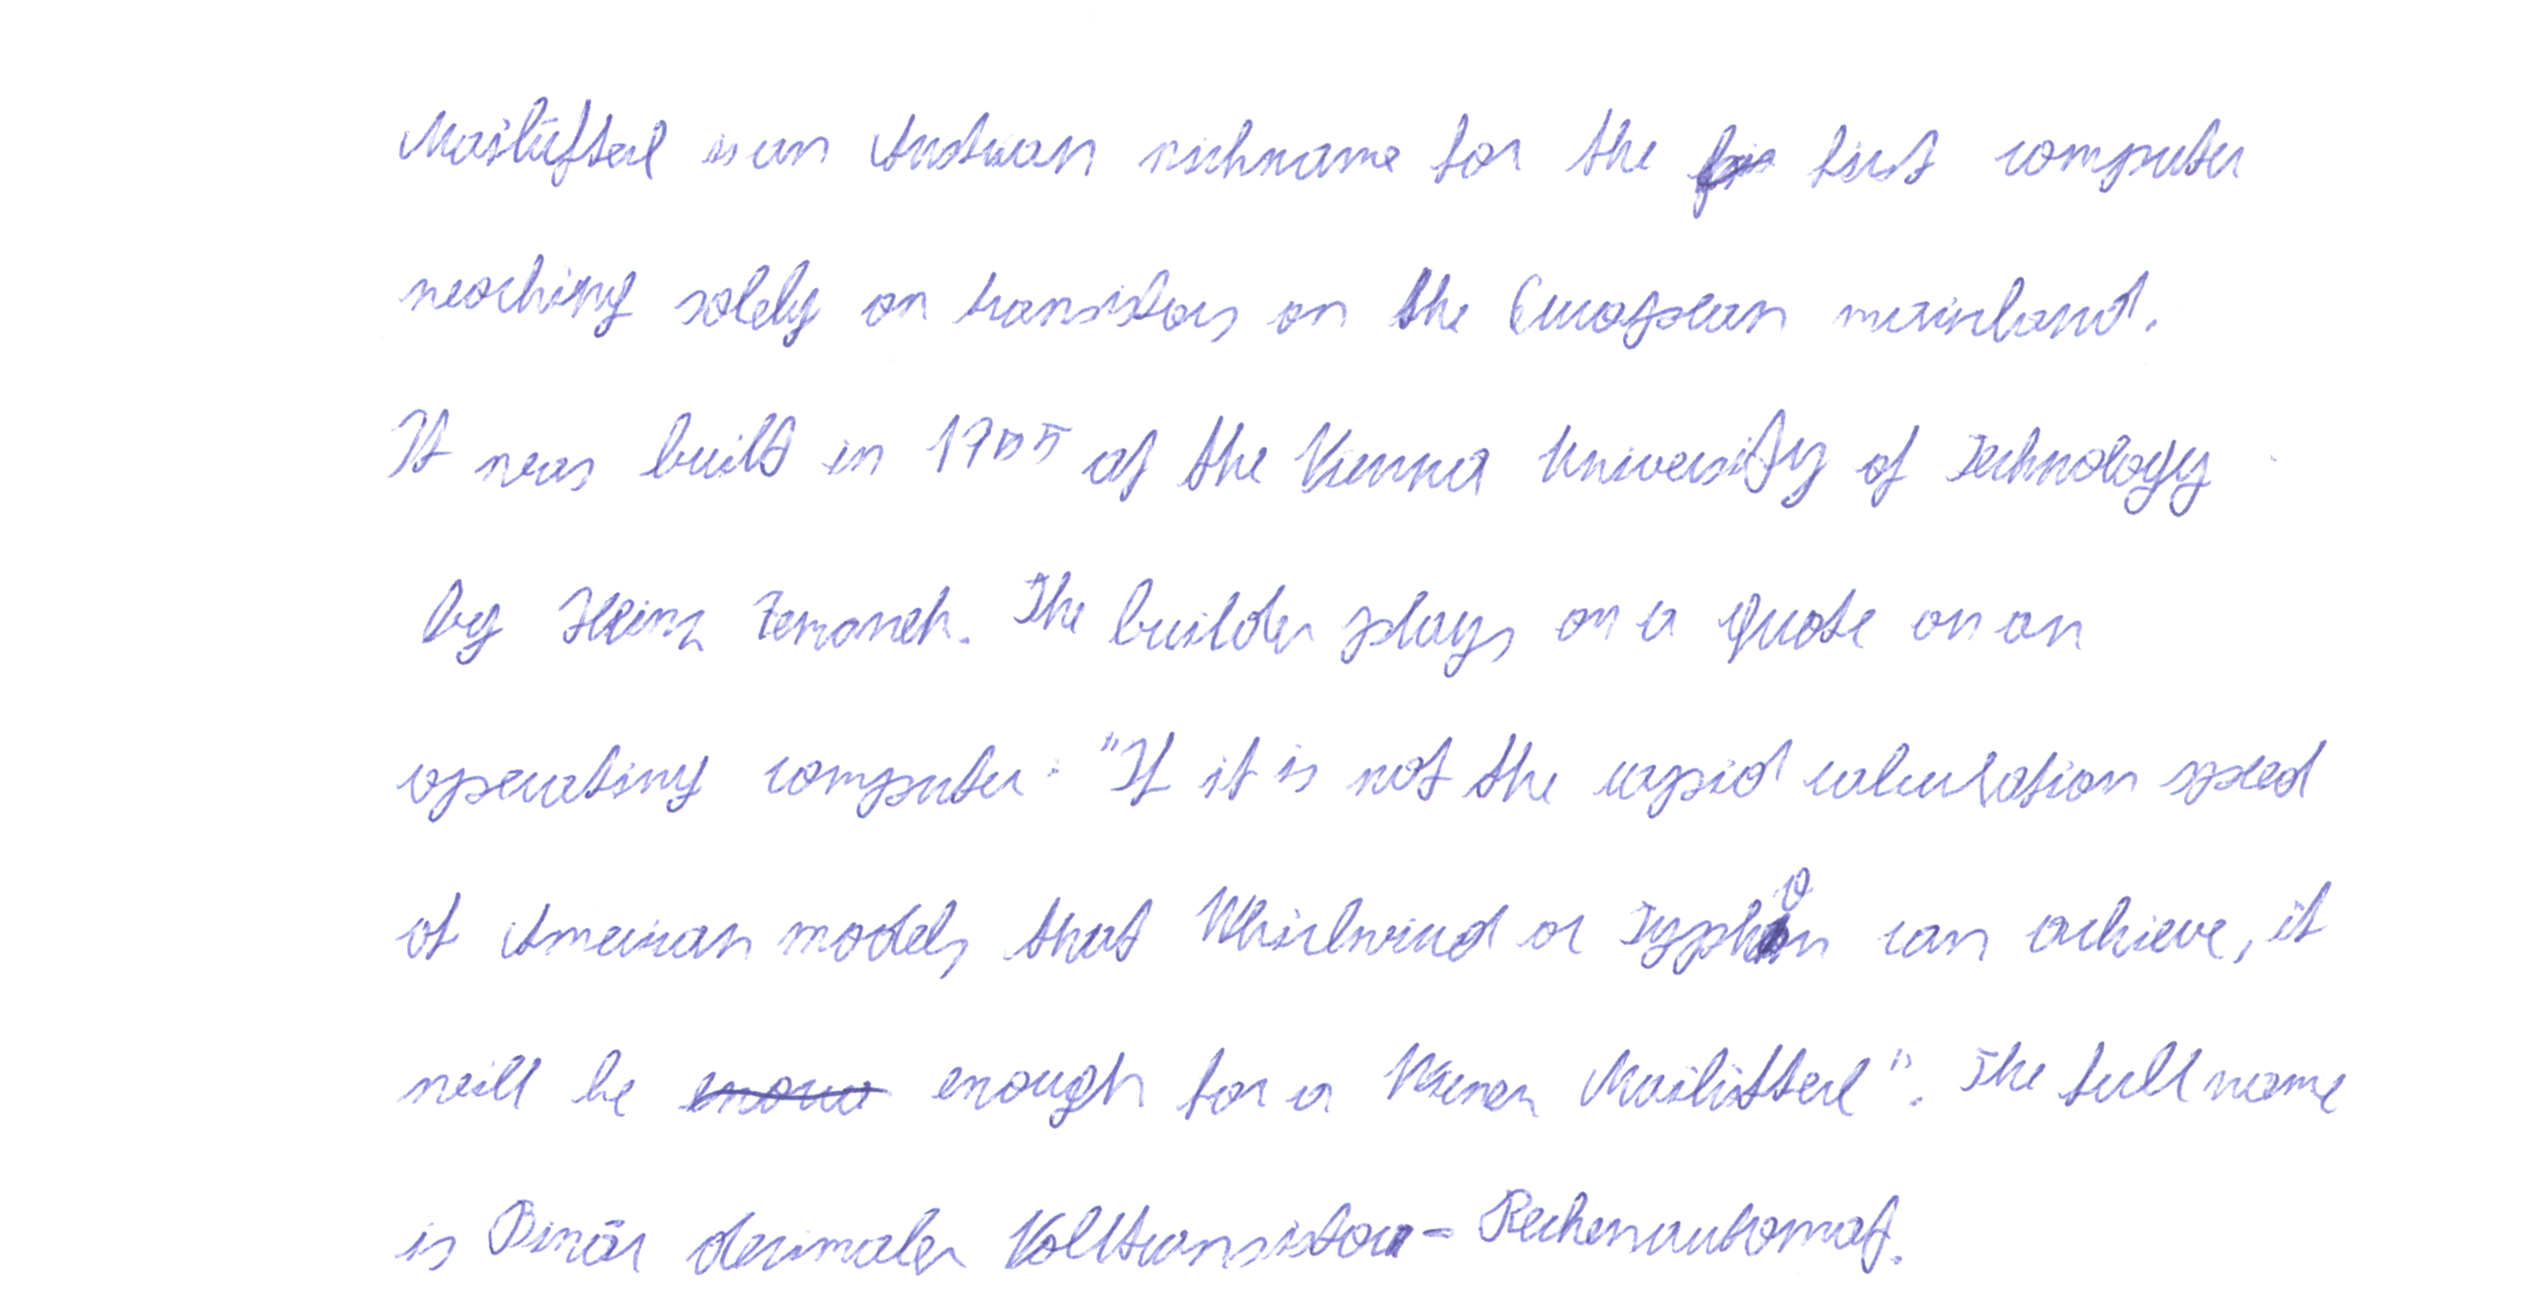 Mailüfterl is an Austrian nickname for the first computer
working solely on transistors on the European mainland.
It was built in 1955 at the Vienna University of Technology
by Heinz Zemanek. The builder plays on a quote on an
operating computer: "If it is not the rapid calculation speed
of American models that Whirlwind or Typhoon can achieve, it
will be enough for a Wiener Mailüfterl". The full name
is Binär dezimaler Volltransistor-Rechenautomat.